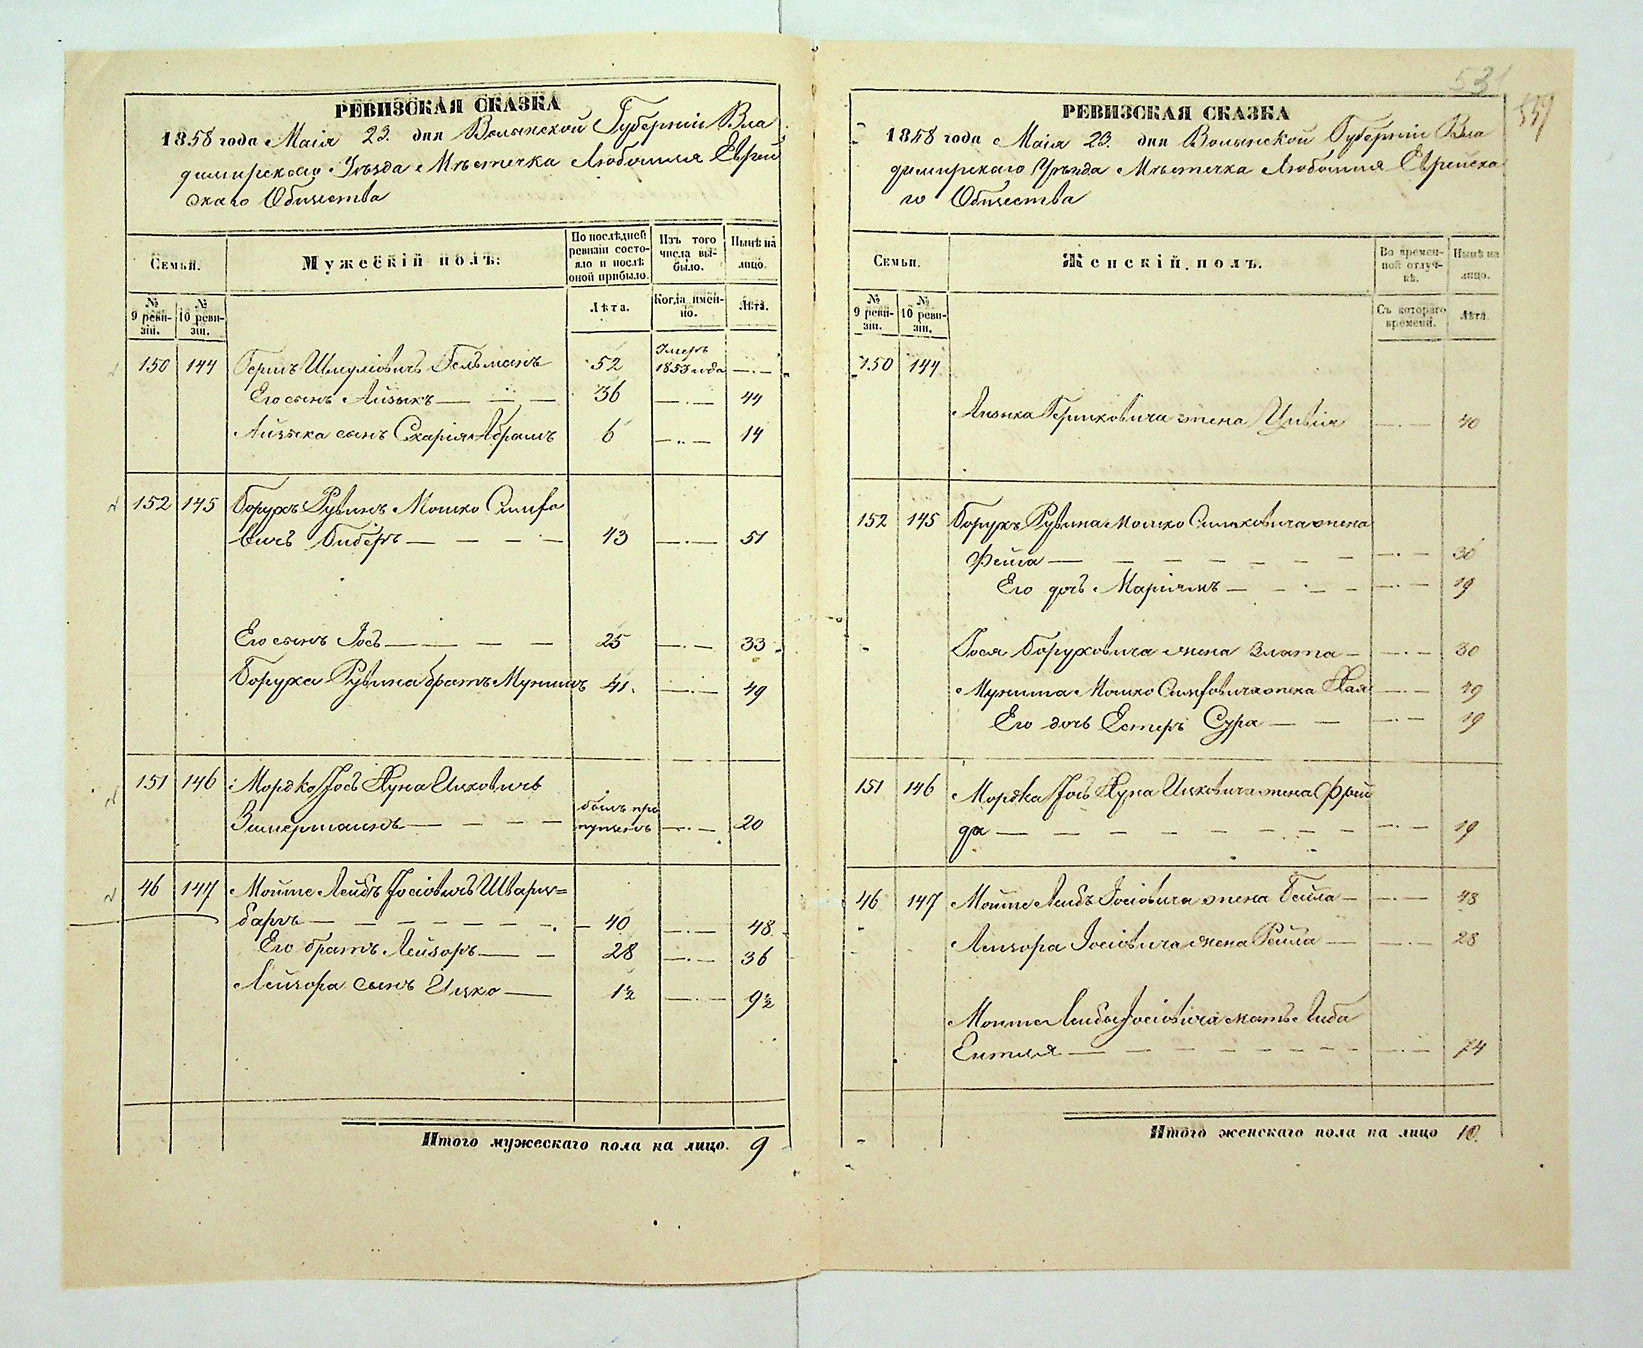 РЕВИЗСКАЯ СКАЗКА
1858 года Маія 23. дня Волынской Губерніи Вла
димирскаго Уѣзда Мѣстечка Любомля Еврей
скаго Общества
Семьи.
Мужескій полъ:
По послѣдней ревизіи состояло и послѣ оной прибыло.
Изъ того числа выбыло.
Нынѣ на лицо.
№ 9 ревизіи.
№ 10 ревизіи.
Лѣта.
Когда именно.
Лѣта.
150 144 Гершъ Шмулёвичъ Гельманъ 52 Умеръ 1853 года —·—
Его сынъ Айзыкъ — — — 36 —·— 44
Айзыка сынъ Схарія Абрамъ 6 —·— 14
152 145 Борухъ Рувинъ Мошко Симхо
вичъ Биберъ — — — — 43 —·— 51
Его сынъ Іосъ — — — — 25 —·— 33
Боруха Рувина братъ Мунишъ 41. —·— 49
151 146 Мордко Іосъ Хуна Ицковичъ
Зимерманъ — — — — былъ пропущенъ —·— 20
46 147 Мойше Лейбъ Іосіовичъ Шварц=
баръ — — — — — 40 —·— 48
Его братъ Лейзоръ — — 28 —·— 36
Лейзора сынъ Ицко — 1½ —·— 9½
Итого мужескаго пола на лицо. 9
531
РЕВИЗСКАЯ СКАЗКА
1858 года Маія 23. дня Волынской Губерніи Вла
димирскаго Уѣзда Мѣстечка Любомля Еврейска
го Общества
Семьи.
Женскій полъ.
Во временной отлучкѣ.
Нынѣ на лицо.
№ 9 ревизіи.
№ 10 ревизіи.
Съ котораго времени.
Лѣта.
150 144
Айзыка Гершковича жена Цивія —·— 40
152 145 Борухъ Рувина Мошко Симховича жена
Фейга — — — — — — —·— 30
Его дочь Маріямъ — — — — —·— 19
Іося Боруховича жена Злата — —·— 30
Муниша Мошко Симховича жена Хая —·— 49
Его дочь Естеръ Сура — — —·— 19
151 146 Мордка Іосъ Хуна Ицковича жена Фрей
да — — — — — — — —·— 19
46 147 Мойше Лейбъ Іосіовича жена Бейла — —·— 43
Лейзора Іосіовича жена Рейла — —·— 28
Мойше Лейбы Іосіовича мать Либа
Ентля — — — — — — —·— 74
Итого женскаго пола на лицо 10.